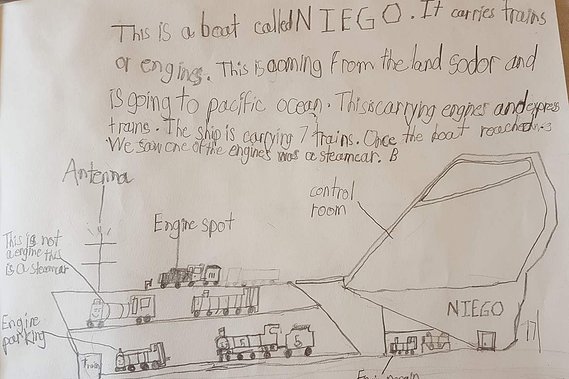 This is a boat called NIEGO. It carries trains
or engines. This is coming from the land sodor and
is going to pacific ocean. This is carrying engines and express
trains. The ship is carrying 7 trains. Once the boat reached
We saw one of the engines was a steamcar. B
Antenna
control
room
Engine spot
This is not
a engine this
is a steamcar
Engine
parking
NIEGO
Train
5